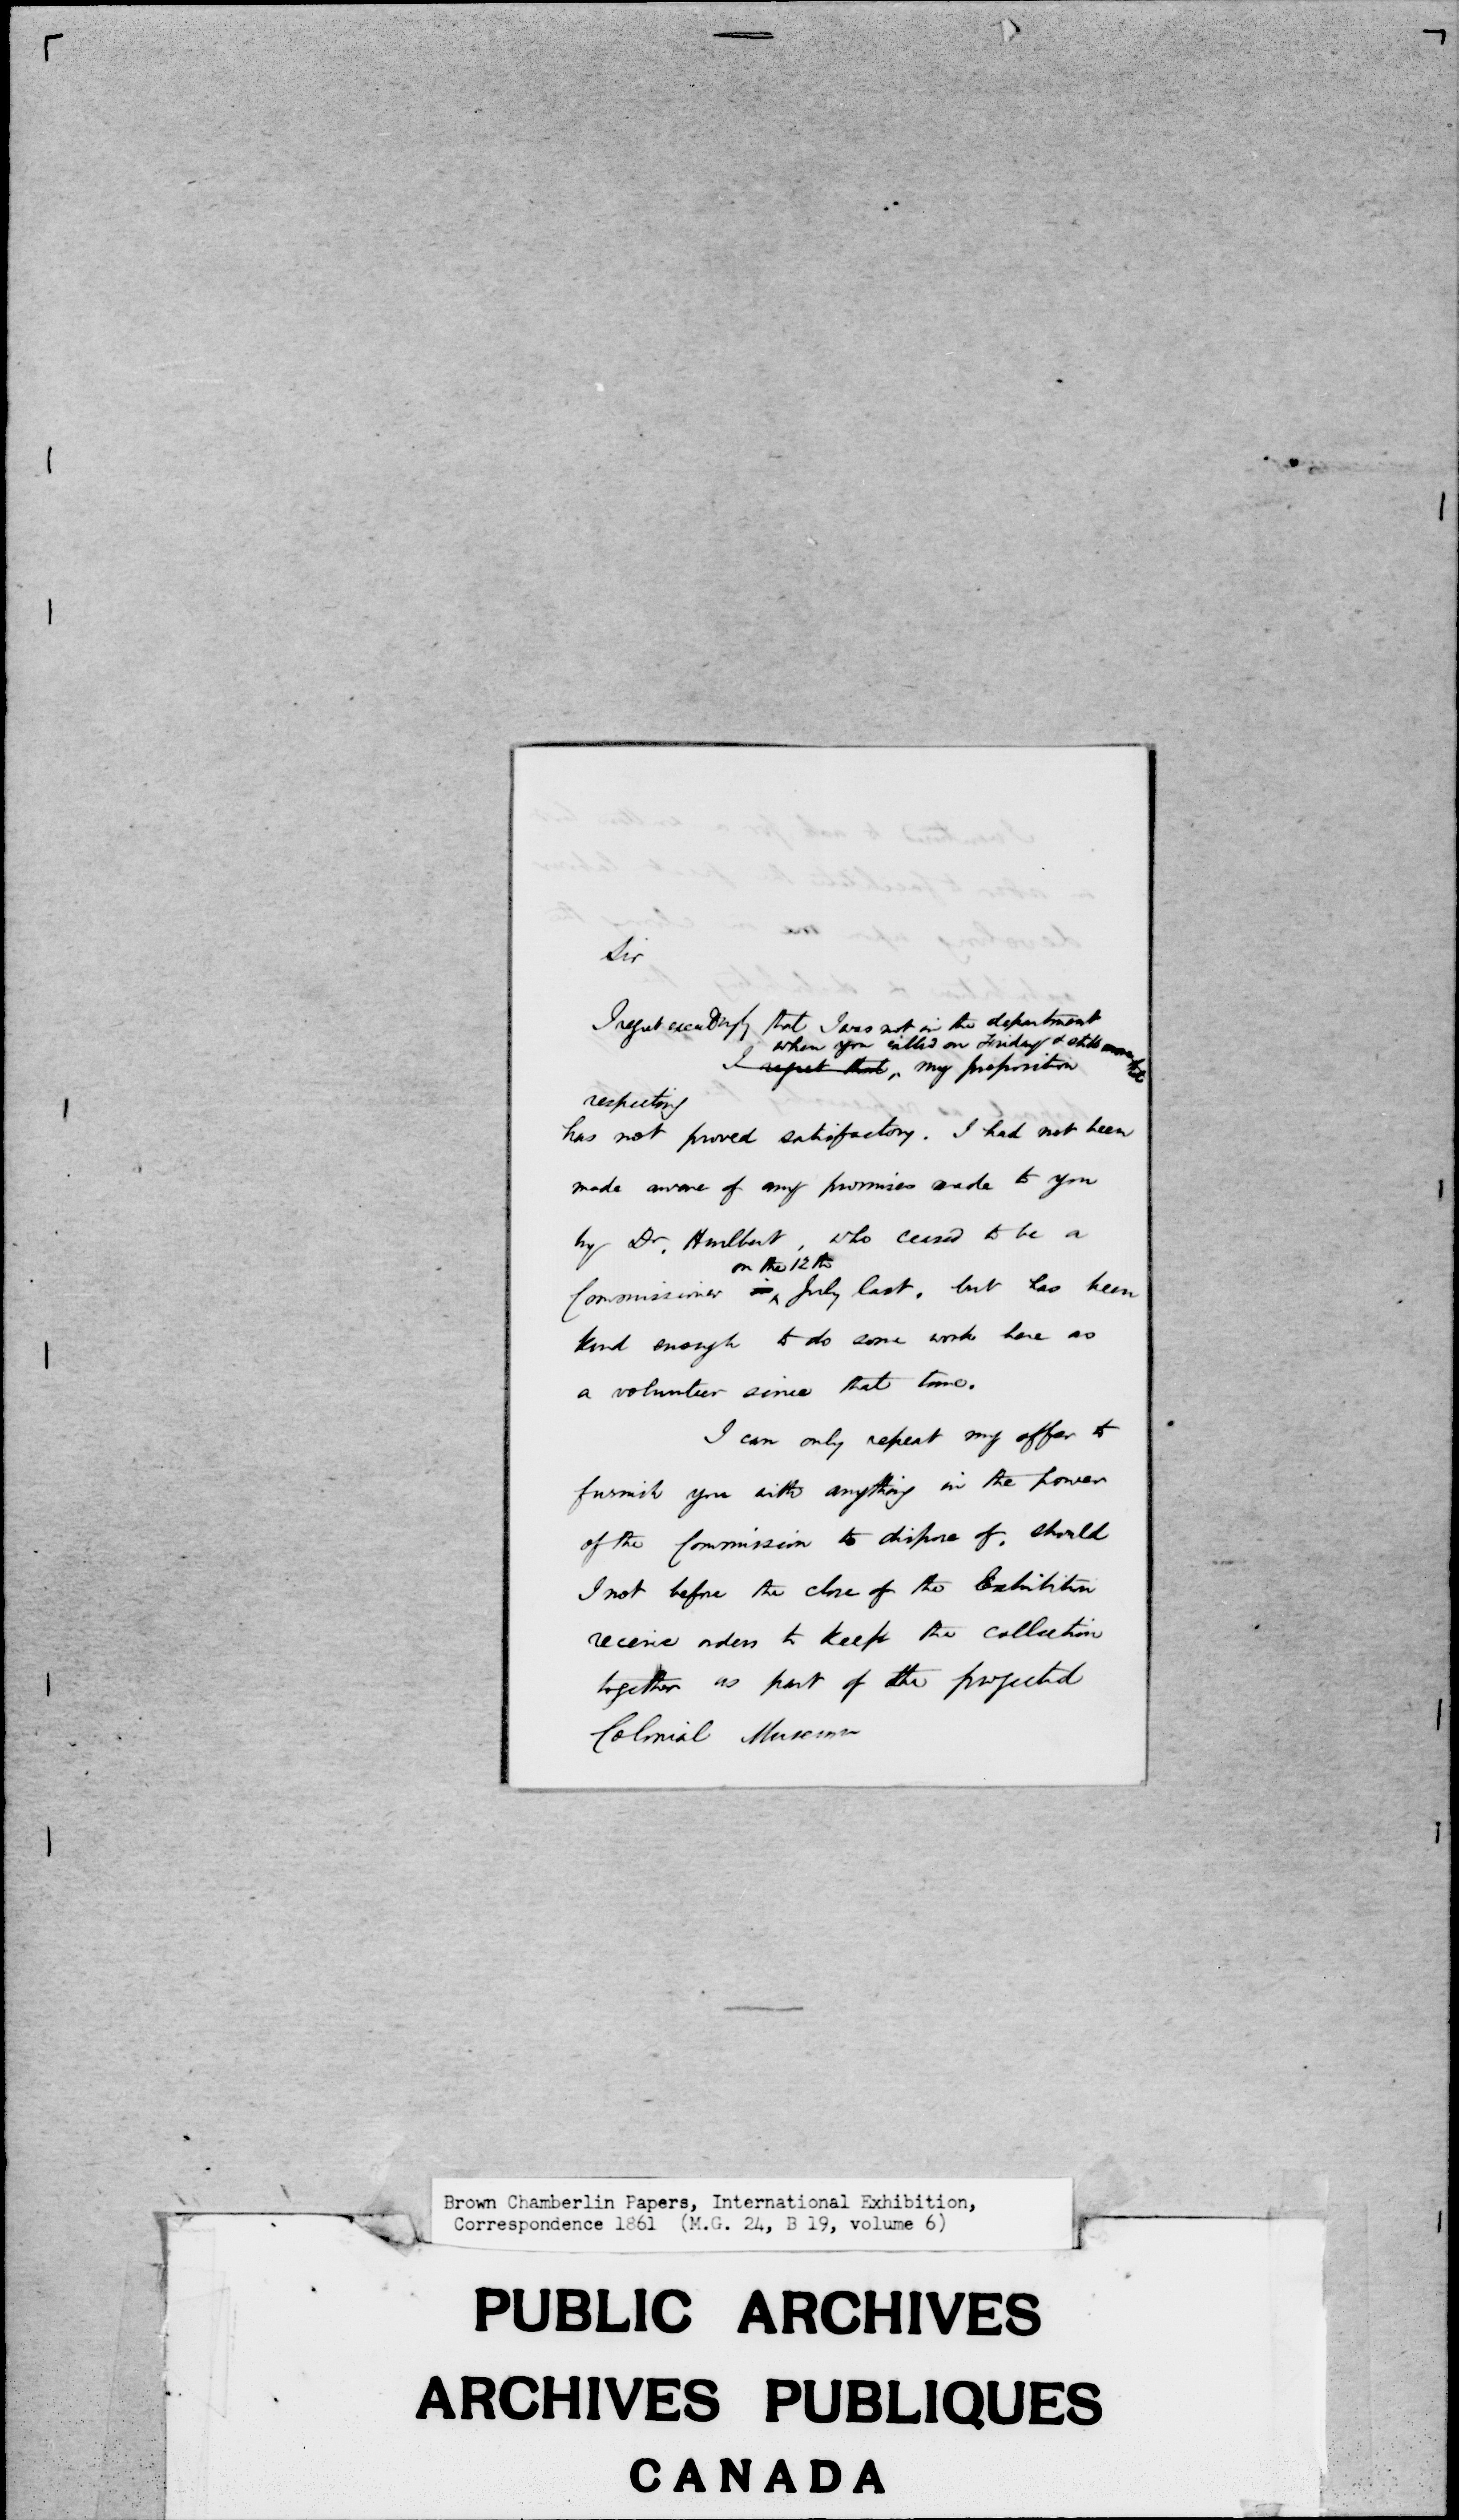 Sir
I regret exceedingly that I was not in the department
when you called on Friday & still more that
I regret that, my proposition
respecting
has not proved satisfactory. I had not been
made aware of any promises made to you
by Dr. Hurlbert, who ceased to be a
on the 12th
Commissioner in July last, but has been
kind enough to do some work here as
a volunteer since that time.
I can only repeat my offer to
furnish you with anything in the power
of the Commission to dispose of, should
I not before the close of the Exhibition
receive orders to keep the collection
together as part of the projected
Colonial Museum
Brown Chamberlin Papers, International Exhibition,
Correspondence 1861 (M.G. 24, B 19, volume 6)
PUBLIC ARCHIVES
ARCHIVES PUBLIQUES
CANADA